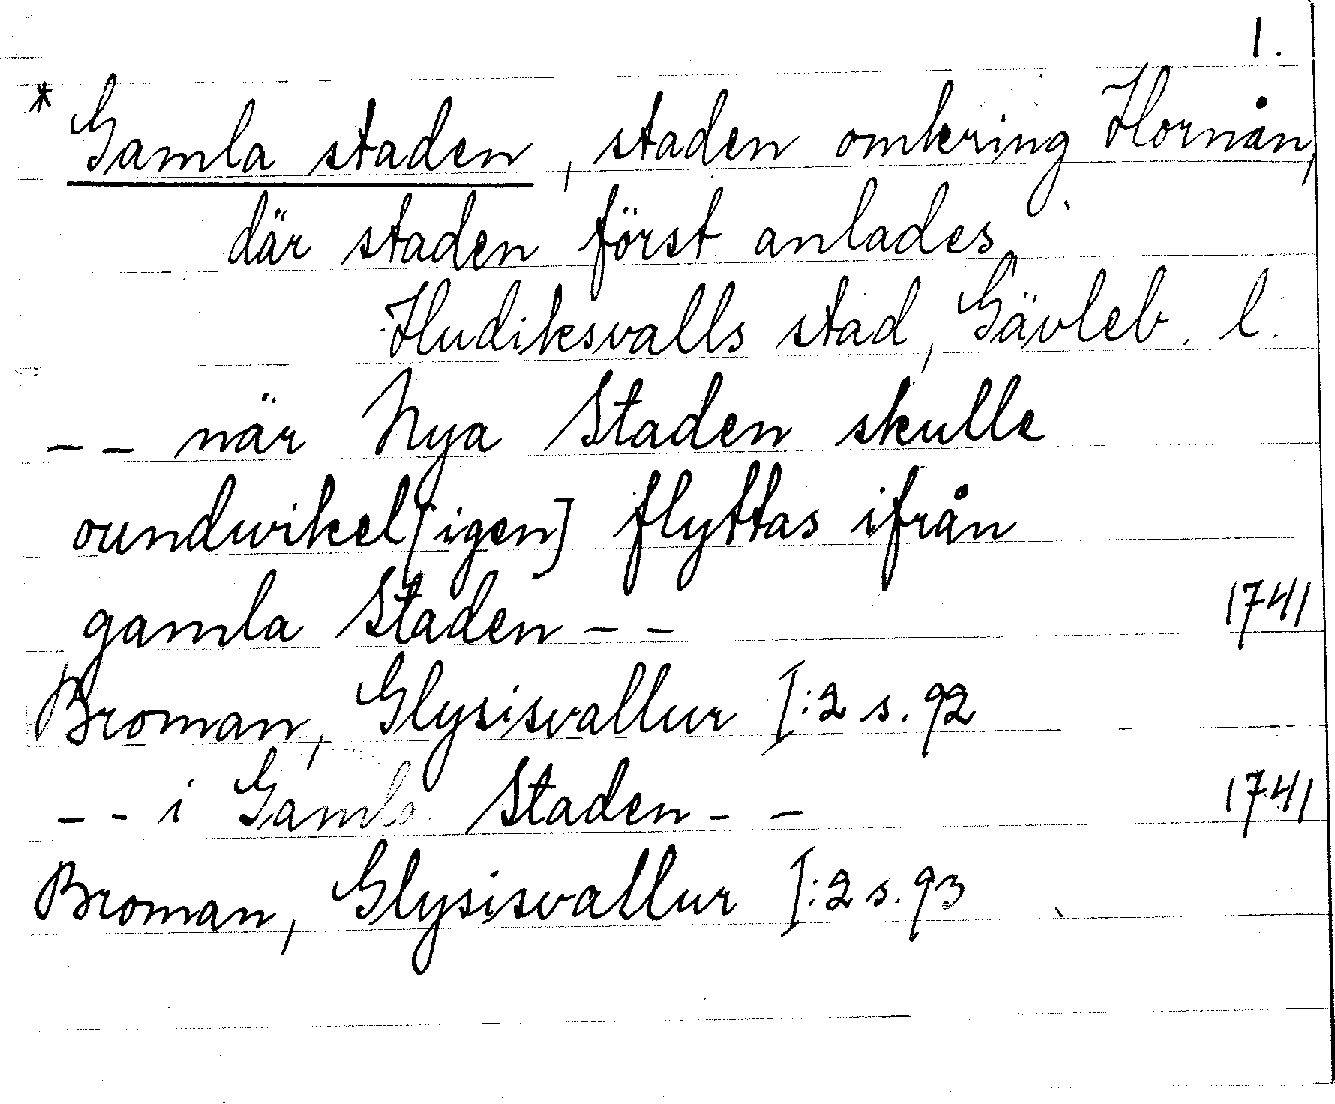 1.
* Gamla staden, staden omkring Hornån,
där staden först anlades
Hudiksvalls stad, Gävleb. l.
-- när Nya Staden skulle
oundwikel[igen] flyttas ifrån
gamla Staden -- 1741
Broman, Glysisvallur I:2 s. 92
-- i Gamla Staden -- 1741
Broman, Glysisvallur I:2 s. 93